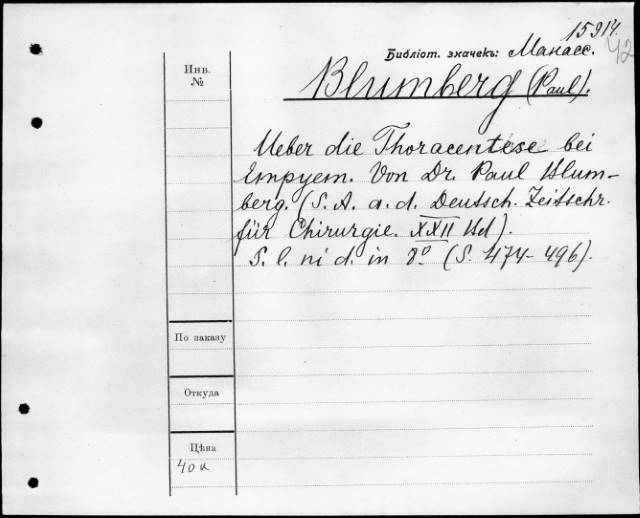 15914.
42
Библіот. значекъ: Манасс.
Blumberg (Paul).
Инв.
№
Ueber die Thoracentese bei
Empyem. Von Dr. Paul Blum-
berg. (S. A. a. d. Deutsch. Zeitschr.
für Chirurgie. XXII Bd).
S. l. ni d. in 8º (S. 474-496).
По заказу
Откуда
Цѣна
40 к